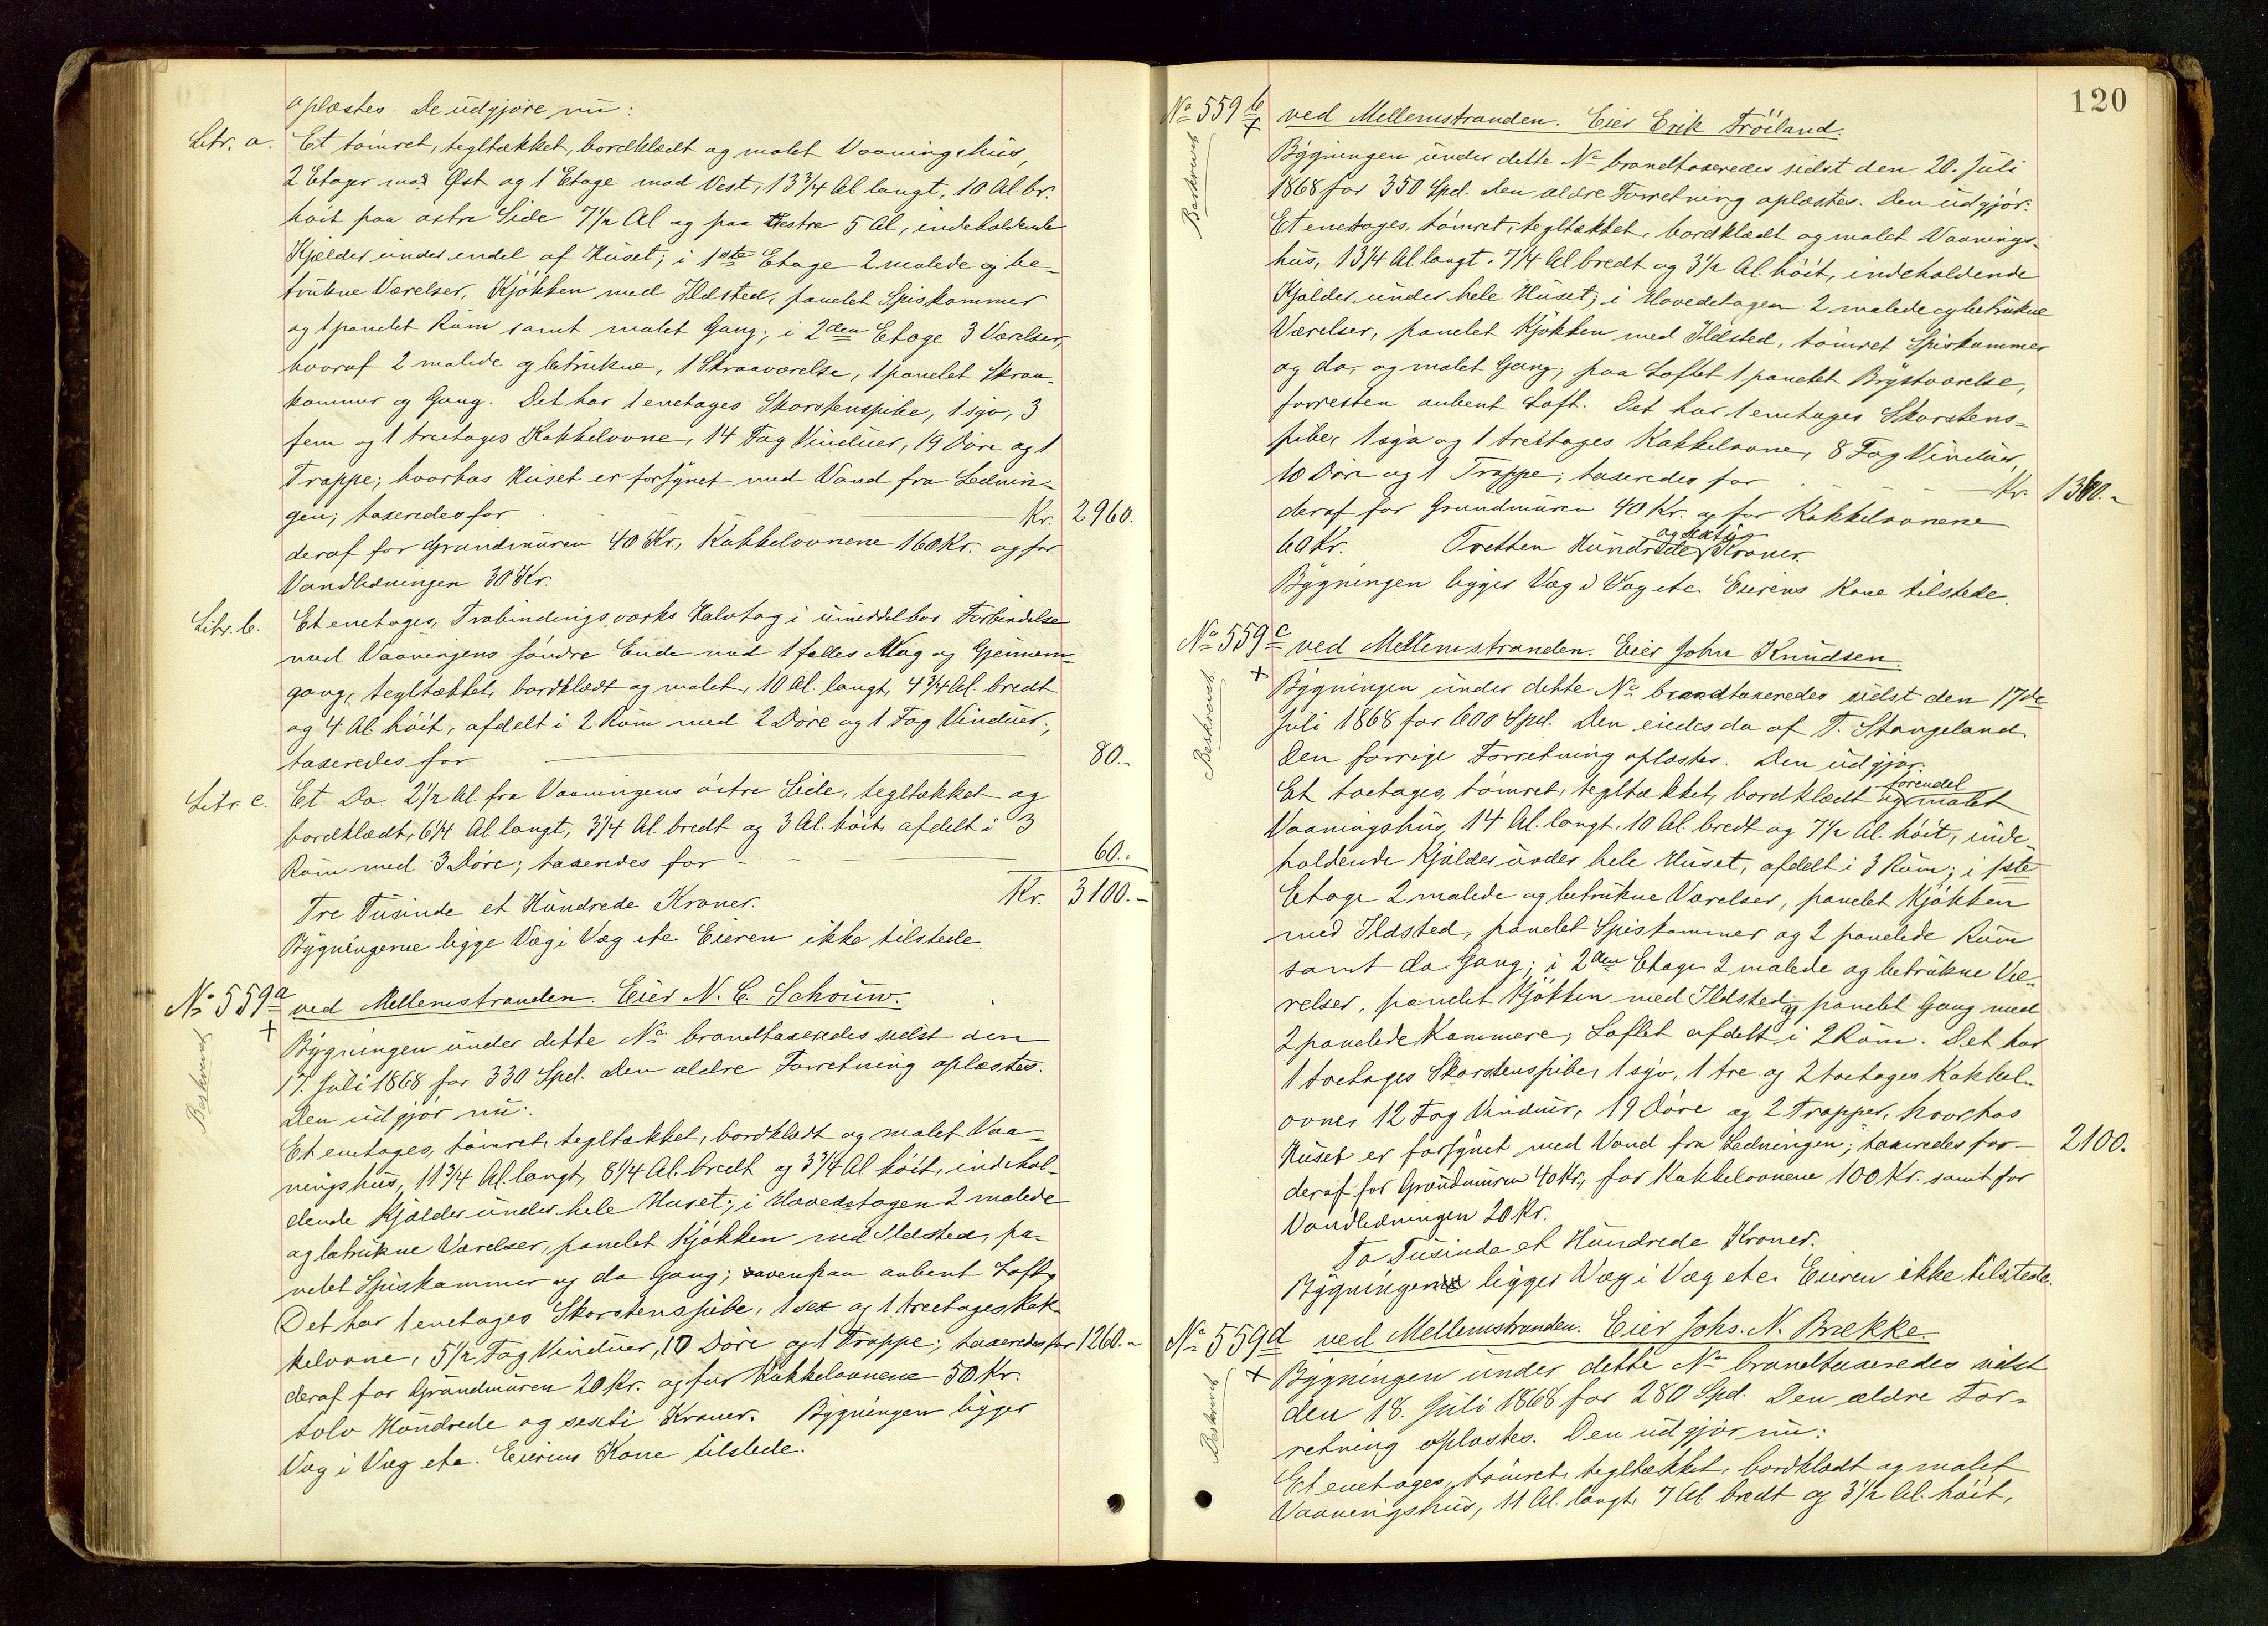 oplæstes. De udgjøre nu:
Litr. a. Et tømret, tegltækket, bordklædt og malet Vaaningshus,
2 Etager mod Øst og 1 Etage mod Vest, 13 3/4 Al langt, 10 Al. br.
høit paa østre Side 7 1/2 Al og paa Vestre 5 Al, indeholdende
Kjælder under endel af Huset; i 1ste Etage 2 malede og be-
trukne Værelser, Kjøkken med Ildsted, panelet Spiskammer
og 1 panelet Rum samt malet Gang; i 2den Etage 3 Værelser,
hvoraf 2 malede og betrukne, 1 Skraaværelse, 1 panelet Skraa-
kammer og Gang. Det har 1 enetages Skorstenspibe, 1 syv, 3
fem og 1 treetages Kakkelovne, 14 Fag Vinduer, 19 Døre og 1
Trappe; hvorhos Huset er forsynet med Vand fra Lednin-
gen; taxeredes for Kr. 2960.
deraf for Grundmuren 40 Kr., Kakkelovnene 160 Kr. og for
Vandledningen 30 Kr.
Litr. b. Et enetages, Træbindingsværks Halvtag i umiddelbar Forbindelse
med Vaaningens søndre Ende med 1 fælles Væg og Gjennem-
gang, tegltækket, bordklædt og malet, 10 Al. langt, 4 3/4 Al. bredt
og 4 Al. høit, afdelt i 2 Rum med 2 Døre og 1 Fag Vinduer;
taxeredes for 80.-
Litr. c. Et Do. 2 1/2 Al. fra Vaaningens østre Side, tegltækket og
bordklædt, 6 1/4 Al langt, 3 1/4 Al. bredt og 3 Al. høit, afdelt i 3
Rum med 3 Døre; taxeredes for 60.-
Tre Tusinde et Hundrede Kroner. Kr. 3100.-
Bygningerne ligge Væg i Væg etc. Eieren ikke tilstede.
No 559a ved Mellemstranden. Eier N. C. Schouw.
+ Beskrevet
Bygningen under dette No brandtaxeredes sidst den
17. Juli 1868 for 330 Spd. Den ældre Forretning oplæstes.
Den udgjør nu:
Et enetages, tømret, tegltækket, bordklædt og malet Vaa-
ningshus, 11 3/4 Al. langt, 8 1/4 Al. bredt og 3 3/4 Al høit, indehol-
dende Kjælder under hele Huset; i Hovedetagen 2 malede
og betrukne Værelser, panelet Kjøkken med Ildsted, pa-
nelet Spiskammer og do Gang; ovenpaa aabent Loft,
Det har 1 enetages Skorstenspibe, 1 sex og 1 treetages Kak-
kelovne, 5 1/2 Fag Vinduer, 10 Døre og 1 Trappe; taxeredes for 1260.-
deraf for Grundmuren 20 Kr. og for Kakkelovnene 50 Kr.
tolv Hundrede og sexti Kroner. Bygningen ligger
Væg i Væg etc. Eierens Kone tilstede.
120
No 559b ved Mellemstranden. Eier Erik Trøiland.
+ Beskrevet
Bygningen under dette No brandtaxeredes sidst den 20. Juli
1868 for 350 Spd. Den ældre Forretning oplæstes. Den udgjør:
Et enetages, tømret, tegltækket, bordklædt og malet Vaanings-
hus, 13 1/4 Al. langt, 7 1/4 Al bredt og 3 1/2 Al. høit, indeholdende
Kjælder under hele Huset; i Hovedetagen 2 malede og betrukne
Værelser, panelet Kjøkken med Ildsted, tømret Spiskammer
og do, og malet Gang; paa Loftet 1 panelet Brystværelse,
forresten aabent Loft. Det har 1 enetages Skorstens-
pibe, 1 syv og 1 treetages Kakkelovne, 8 Fag Vinduer,
10 Døre og 1 Trappe; taxeredes for Kr. 1360.-
deraf for Grundmuren 40 Kr. og for Kakkelovnene
60 Kr. Tretten Hundrede og sexti Kroner.
Bygningen ligger Væg i Væg etc. Eierens Kone tilstede.
No 559c ved Mellemstranden. Eier John Knudsen.
+ Beskrevet
Bygningen under dette No brandtaxeredes sidst den 17de
Juli 1868 for 600 Spd. Den eiedes da af T. Stangeland.
Den forrige Forretning oplæstes. Den udgjør:
Et toetages, tømret, tegltækket, bordklædt og forendel malet
Vaaningshus, 14 Al. langt, 10 Al. bredt og 7 1/2 Al. høit, inde-
holdende Kjælder under hele Huset, afdelt i 3 Rum; i 1ste
Etage 2 malede og betrukne Værelser, panelet Kjøkken
med Ildsted, panelet Spiskammer og 2 panelede Rum
samt do Gang; i 2den Etage 2 malede og betrukne Væ-
relser, panelet Kjøkken med Ildsted og panelet Gang med
2 panelede Kammere; Loftet afdelt i 2 Rum. Det har
1 toetages Skorstenspibe, 1 syv, 1 tre og 2 toetages Kakkel-
ovne, 12 Fag Vinduer, 19 Døre og 2 Trapper, hvorhos
Huset er forsynet med Vand fra Ledningen; taxeredes for 2100.
deraf for Grundmuren 40 Kr., for Kakkelovnene 100 Kr. samt for
Vandledningen 20 Kr.
To Tusinde et Hundrede Kroner.
Bygningen ligger Væg i Væg etc. Eieren ikke tilstede.
No 559d ved Mellemstranden. Eier Johs. N. Brække.
+ Beskrevet
Bygningen under dette No brandtaxeredes sidst
den 18. Juli 1868 for 280 Spd. Den ældre For-
retning oplæstes. Den udgjør nu:
Et enetages, tømret, tegltækket, bordklædt og malet
Vaaningshus, 11 Al. langt, 7 Al. bredt og 3 1/2 Al. høit,